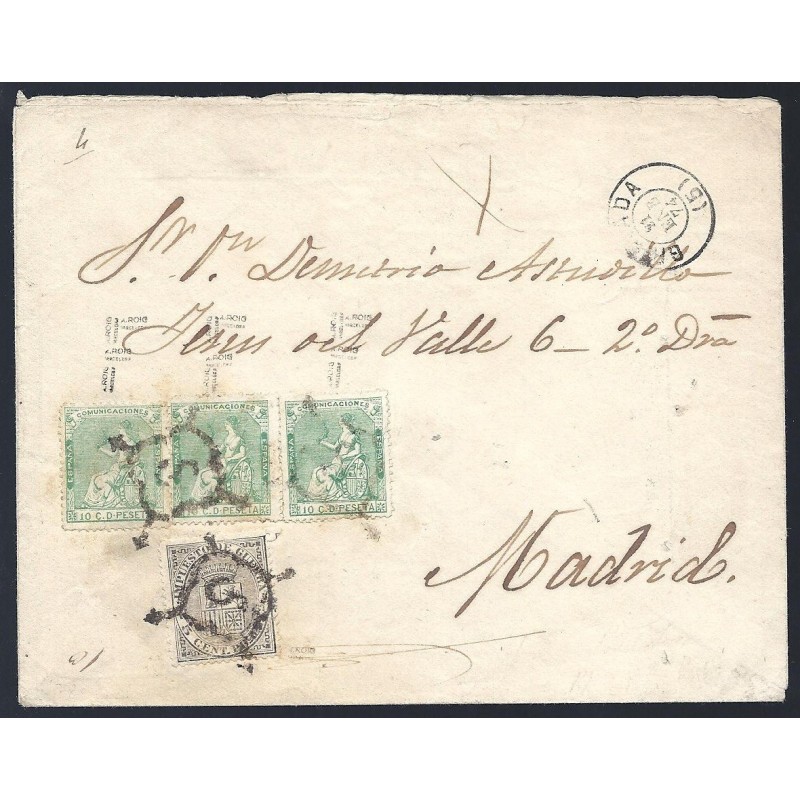 Sr. Dn. Demetrio Astudillo
Jesus del Valle 6_ 2º. Dra
Madrid.
A.ROIG
BARCELONA
A.ROIG
BARCELONA
A.ROIG
BARCELONA
COMUNICACIONES
ESPAÑA
10 C. D. PESETA
COMUNICACIONES
ESPAÑA
10 C. D. PESETA
COMUNICACIONES
ESPAÑA
10 C. D. PESETA
IMPUESTO DE GUERRA
5 CENT. PESETA
(5)
74